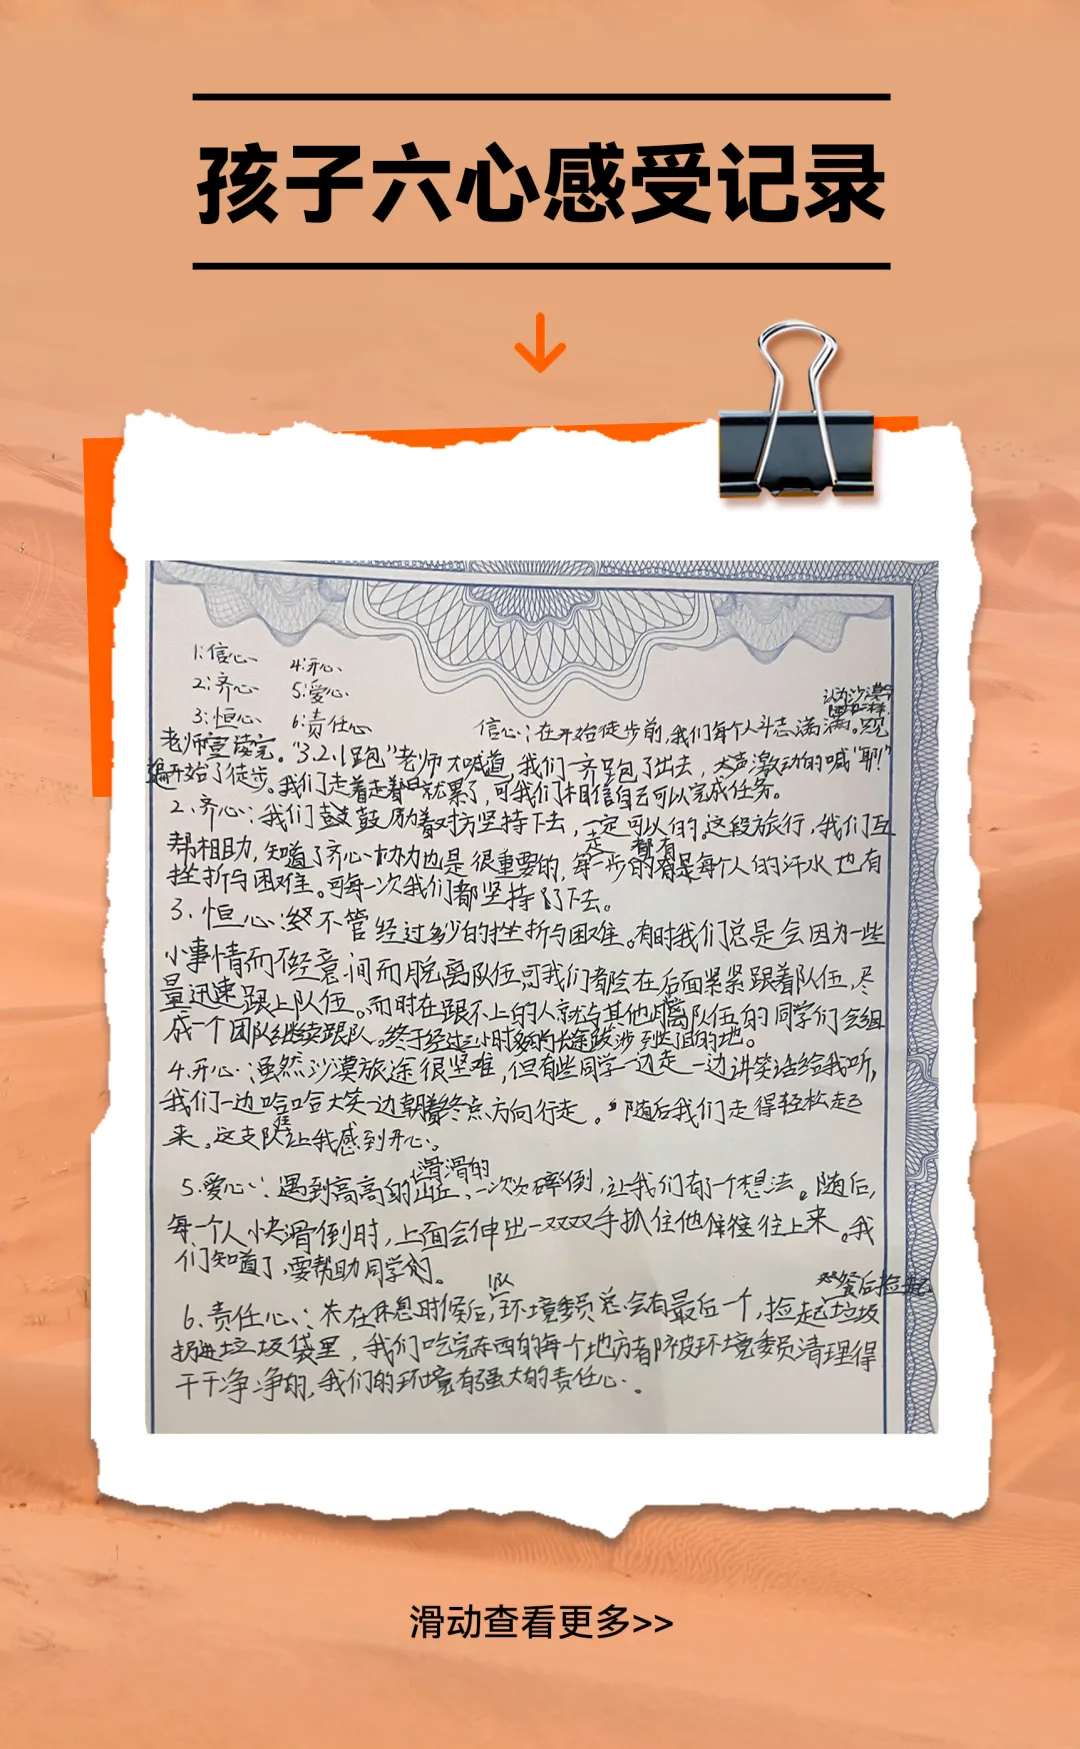 孩子六心感受记录
1:信心 4:开心
2:齐心 5:爱心
3:恒心 6:责任心
信心:在开始徒步前,我们每个人斗志满满。
认为沙漠
老师宣读完。"3.2.1跑"老师大喊道,我们一齐跑了出去,大声激动的喊"耶!"
开始了徒步。我们走着走着就累了,可我们相信自己可以完成任务。
2.齐心:我们鼓鼓励着对方坚持下去,一定可以的。这段旅行,我们互
帮相助,知道了齐心协力也是很重要的,每走一步的都有是每个人的汗水也有
挫折与困难。可每一次我们都坚持了下去。
3.恒心:终不管经过多少的挫折与困难。有时我们总是会因为一些
小事情而不经意间而脱离队伍,可我们都会在后面紧紧跟着队伍,尽
量迅速跟上队伍。而时在跟不上的人就与其他脱离队伍的同学们会组
成一个团队继续跟队。终于经过三小时多的长途跋涉到达目的地。
4.开心:虽然沙漠旅途很坚难,但有些同学一边走一边讲笑话给我听,
我们一边哈哈大笑一边朝着终点方向行走。随后我们走得轻松起
来。这支队伍让我感到开心。
5.爱心:遇到高高的滑滑的山丘,一次次碎倒,让我们有一个想法。随后,
每一个人快滑倒时,上面会伸出一双双手抓住他往上来。我
们知道了,要帮助同学们。
6.责任心:在休息时候后,环境委员总会有最后一个,捡起垃圾
扔进垃圾袋里,我们吃完东西的每个地方都被环境委员清理得
干干净净的,我们的环境有强大的责任心。
滑动查看更多>>